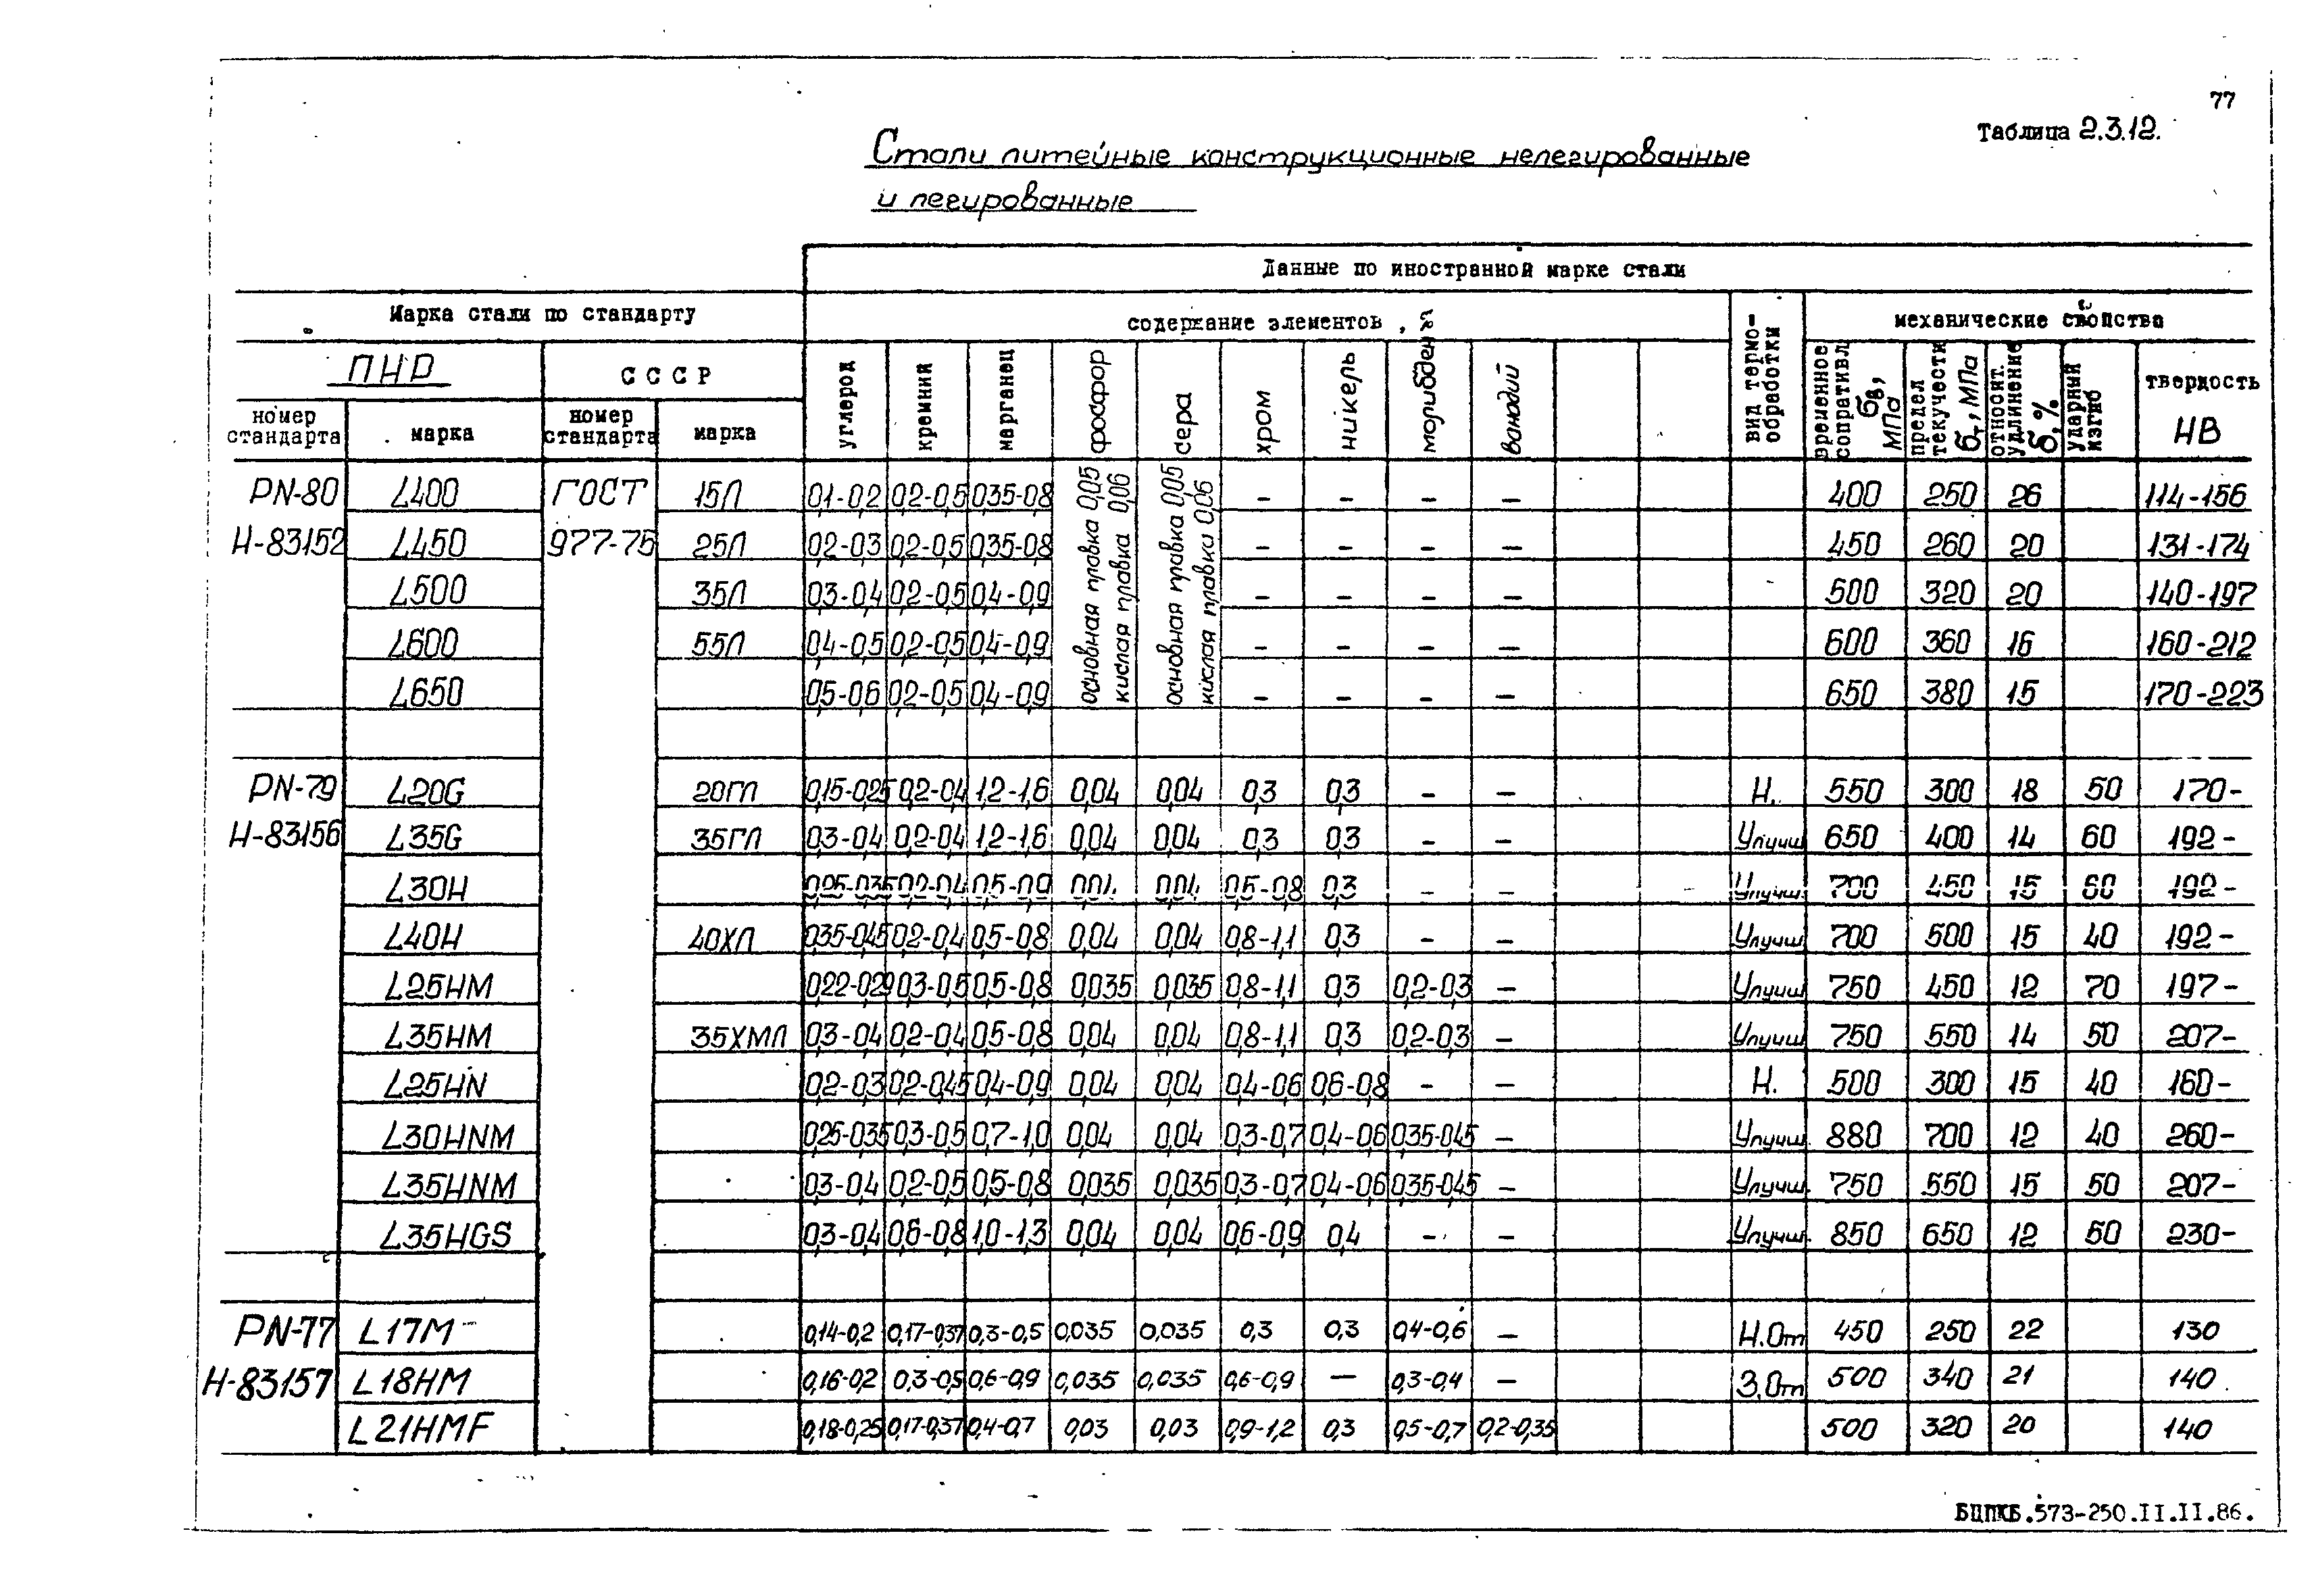 77
Таблица 2.3.12.
Стали литейные конструкционные нелегированные
и легированные
Данные по иностранной марке стали
Марка стали по стандарту
содержание элементов, %
вид термо-обработки
механические свойства
ПНР
СССР
номер стандарта
марка
номер стандарта
марка
углерод
кремний
марганец
фосфор
сера
хром
никель
молибден
ванадий
временное сопративл. бв, МПа
предел текучести бт, МПа
относит. удлинение б, %
ударный изгиб
твердость НВ
основная плавка 0,05
кислая плавка 0,06
основная плавка 0,05
кислая плавка 0,06
PN-80 L400 ГОСТ 15Л 0,1-0,2 0,2-0,5 0,35-0,8 – – – – 400 250 26 114-156
H-83152 L450 977-75 25Л 0,2-0,3 0,2-0,5 0,35-0,8 – – – – 450 260 20 131-174
L500 35Л 0,3-0,4 0,2-0,5 0,4-0,9 – – – – 500 320 20 140-197
L600 55Л 0,4-0,5 0,2-0,5 0,4-0,9 – – – – 600 360 16 160-212
L650 0,5-0,6 0,2-0,5 0,4-0,9 – – – – 650 380 15 170-223
PN-79 L20G 20ГЛ 0,15-0,25 0,2-0,4 1,2-1,6 0,04 0,04 0,3 0,3 – – Н. 550 300 18 50 170-
H-83156 L35G 35ГЛ 0,3-0,4 0,2-0,4 1,2-1,6 0,04 0,04 0,3 0,3 – – Улучш 650 400 14 60 192-
L30H 0,25-0,35 0,2-0,4 0,5-0,9 0,04 0,04 0,5-0,8 0,3 – – Улучш. 700 450 15 60 192-
L40H 40ХЛ 0,35-0,45 0,2-0,4 0,5-0,8 0,04 0,04 0,8-1,1 0,3 – – Улучш 700 500 15 40 192-
L25HM 0,22-0,29 0,3-0,5 0,5-0,8 0,035 0,035 0,8-1,1 0,3 0,2-0,3 – Улучш 750 450 12 70 197-
L35HM 35ХМЛ 0,3-0,4 0,2-0,4 0,5-0,8 0,04 0,04 0,8-1,1 0,3 0,2-0,3 – Улучш 750 550 14 50 207-
L25HN 0,2-0,3 0,2-0,45 0,4-0,9 0,04 0,04 0,4-0,6 0,6-0,8 – – Н. 500 300 15 40 160-
L30HNM 0,25-0,35 0,3-0,5 0,7-1,0 0,04 0,04 0,3-0,7 0,4-0,6 0,35-0,45 – Улучш. 880 700 12 40 260-
L35HNM 0,3-0,4 0,2-0,5 0,5-0,8 0,035 0,035 0,3-0,7 0,4-0,6 0,35-0,45 – Улучш. 750 550 15 50 207-
L35HGS 0,3-0,4 0,6-0,8 1,0-1,3 0,04 0,04 0,6-0,9 0,4 – – Улучш. 850 650 12 50 230-
PN-77 L17M 0,14-0,2 0,17-0,37 0,3-0,5 0,035 0,035 0,3 0,3 0,4-0,6 – Н.От 450 250 22 130
H-83157 L18HM 0,16-0,2 0,3-0,5 0,6-0,9 0,035 0,035 0,6-0,9 – 0,3-0,4 – З.От 500 340 21 140
L21HMF 0,18-0,25 0,17-0,37 0,4-0,7 0,03 0,03 0,9-1,2 0,3 0,5-0,7 0,2-0,35 500 320 20 140
БЦПКБ.573-250.II.II.86.